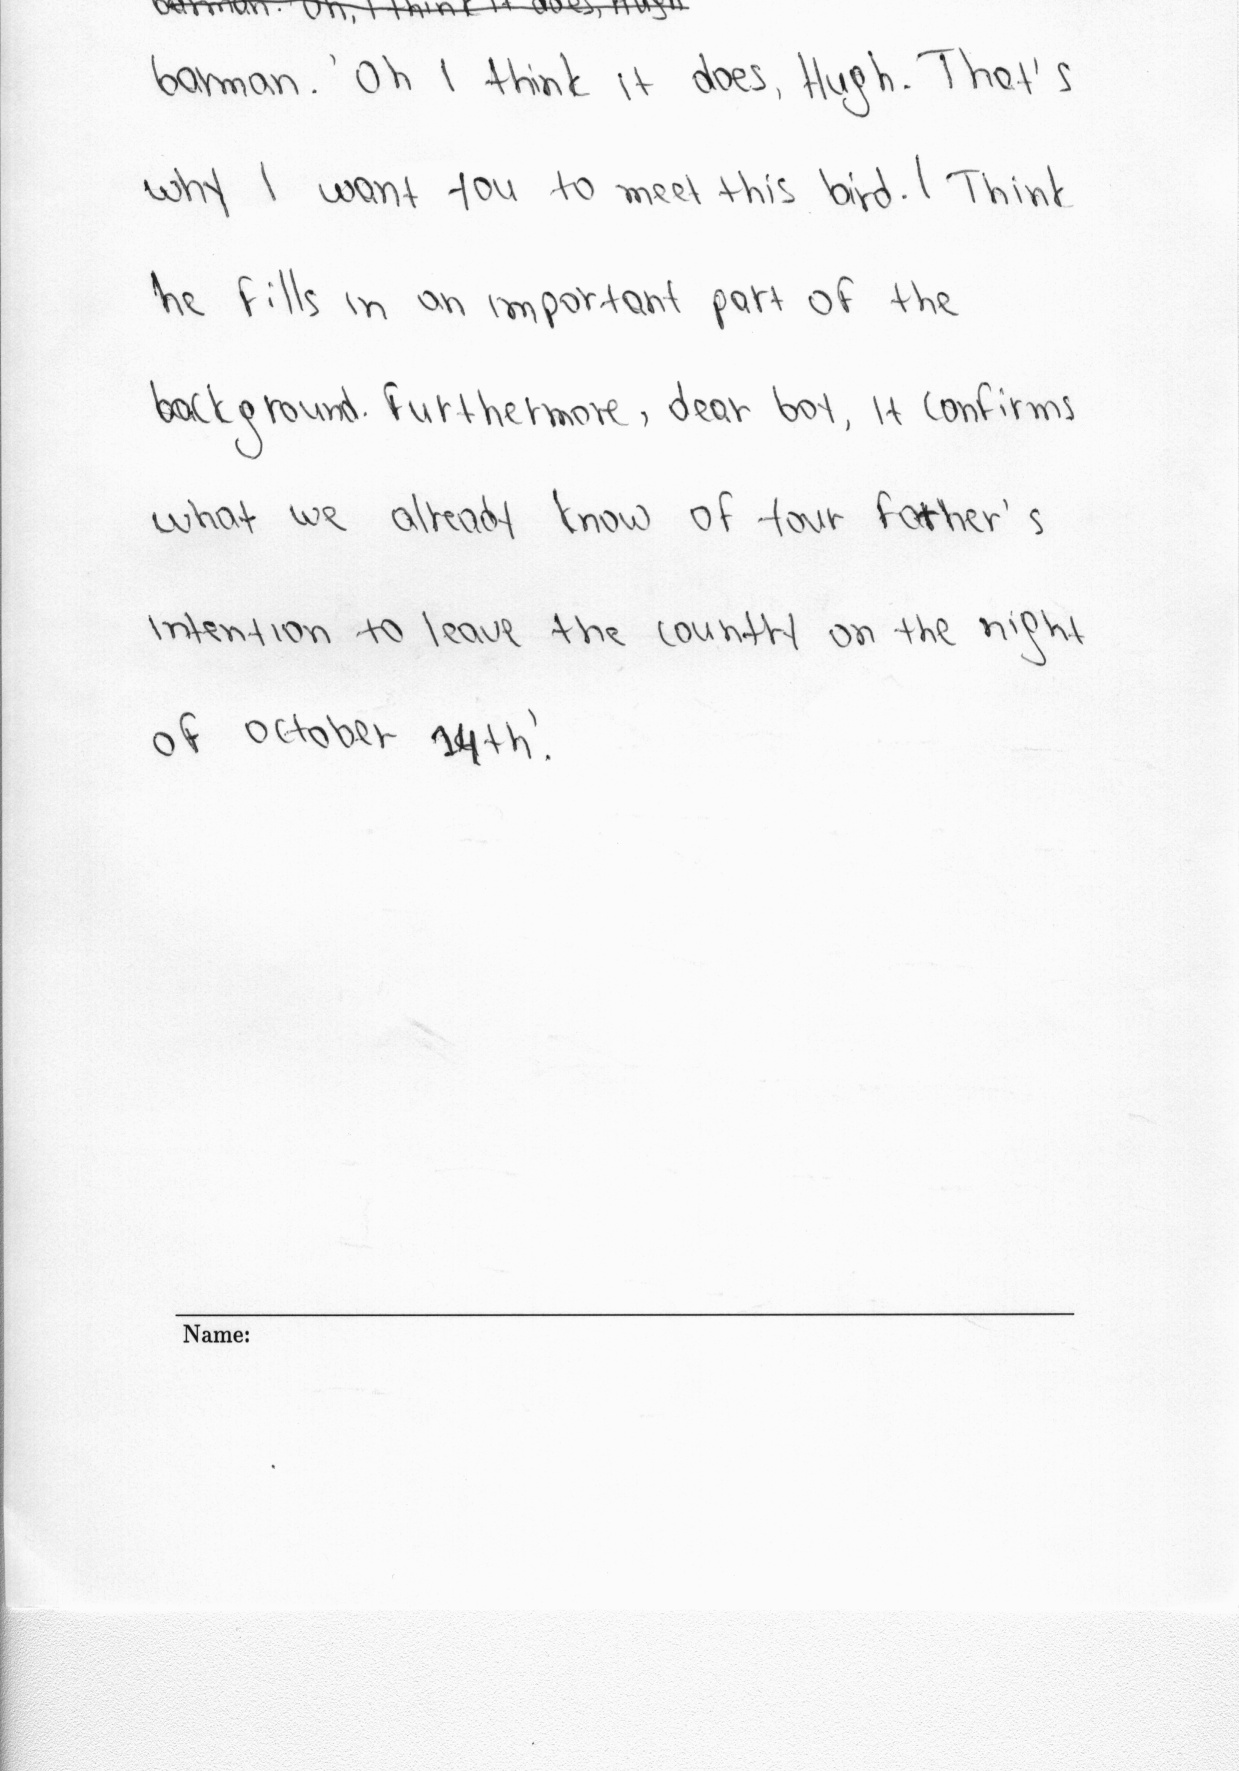 barman. Oh, I think it does, Hugh
barman. 'Oh I think it does, Hugh. That's
why I want you to meet this bird. I Think
he fills in an important part of the
background. Furthermore, dear boy, it confirms
what we already know of your father's
intention to leave the country on the night
of October 14th'.
Name: